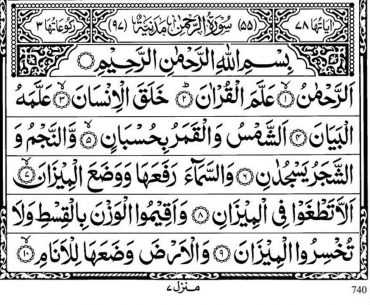 اٰيَاتُهَا ٧٨ (٥٥) سُوْرَةُ الرَّحْمٰنِ مَدَنِيَّةٌ (٩٧) رُكُوْعَاتُهَا ٣
بِسْمِ اللهِ الرَّحْمٰنِ الرَّحِيْمِ
اَلرَّحْمٰنُ ١ عَلَّمَ الْقُرْاٰنَ ٢ خَلَقَ الْاِنْسَانَ ٣ عَلَّمَهُ
الْبَيَانَ ٤ اَلشَّمْسُ وَالْقَمَرُ بِحُسْبَانٍ ٥ وَّالنَّجْمُ وَ
الشَّجَرُ يَسْجُدٰنِ ٦ وَالسَّمَآءَ رَفَعَهَا وَوَضَعَ الْمِيْزَانَ ٧
اَلَّا تَطْغَوْا فِى الْمِيْزَانِ ٨ وَاَقِيْمُوا الْوَزْنَ بِالْقِسْطِ وَلَا
تُخْسِرُوا الْمِيْزَانَ ٩ وَالْاَرْضَ وَضَعَهَا لِلْاَنَامِ ١٠
منزل ٧
740